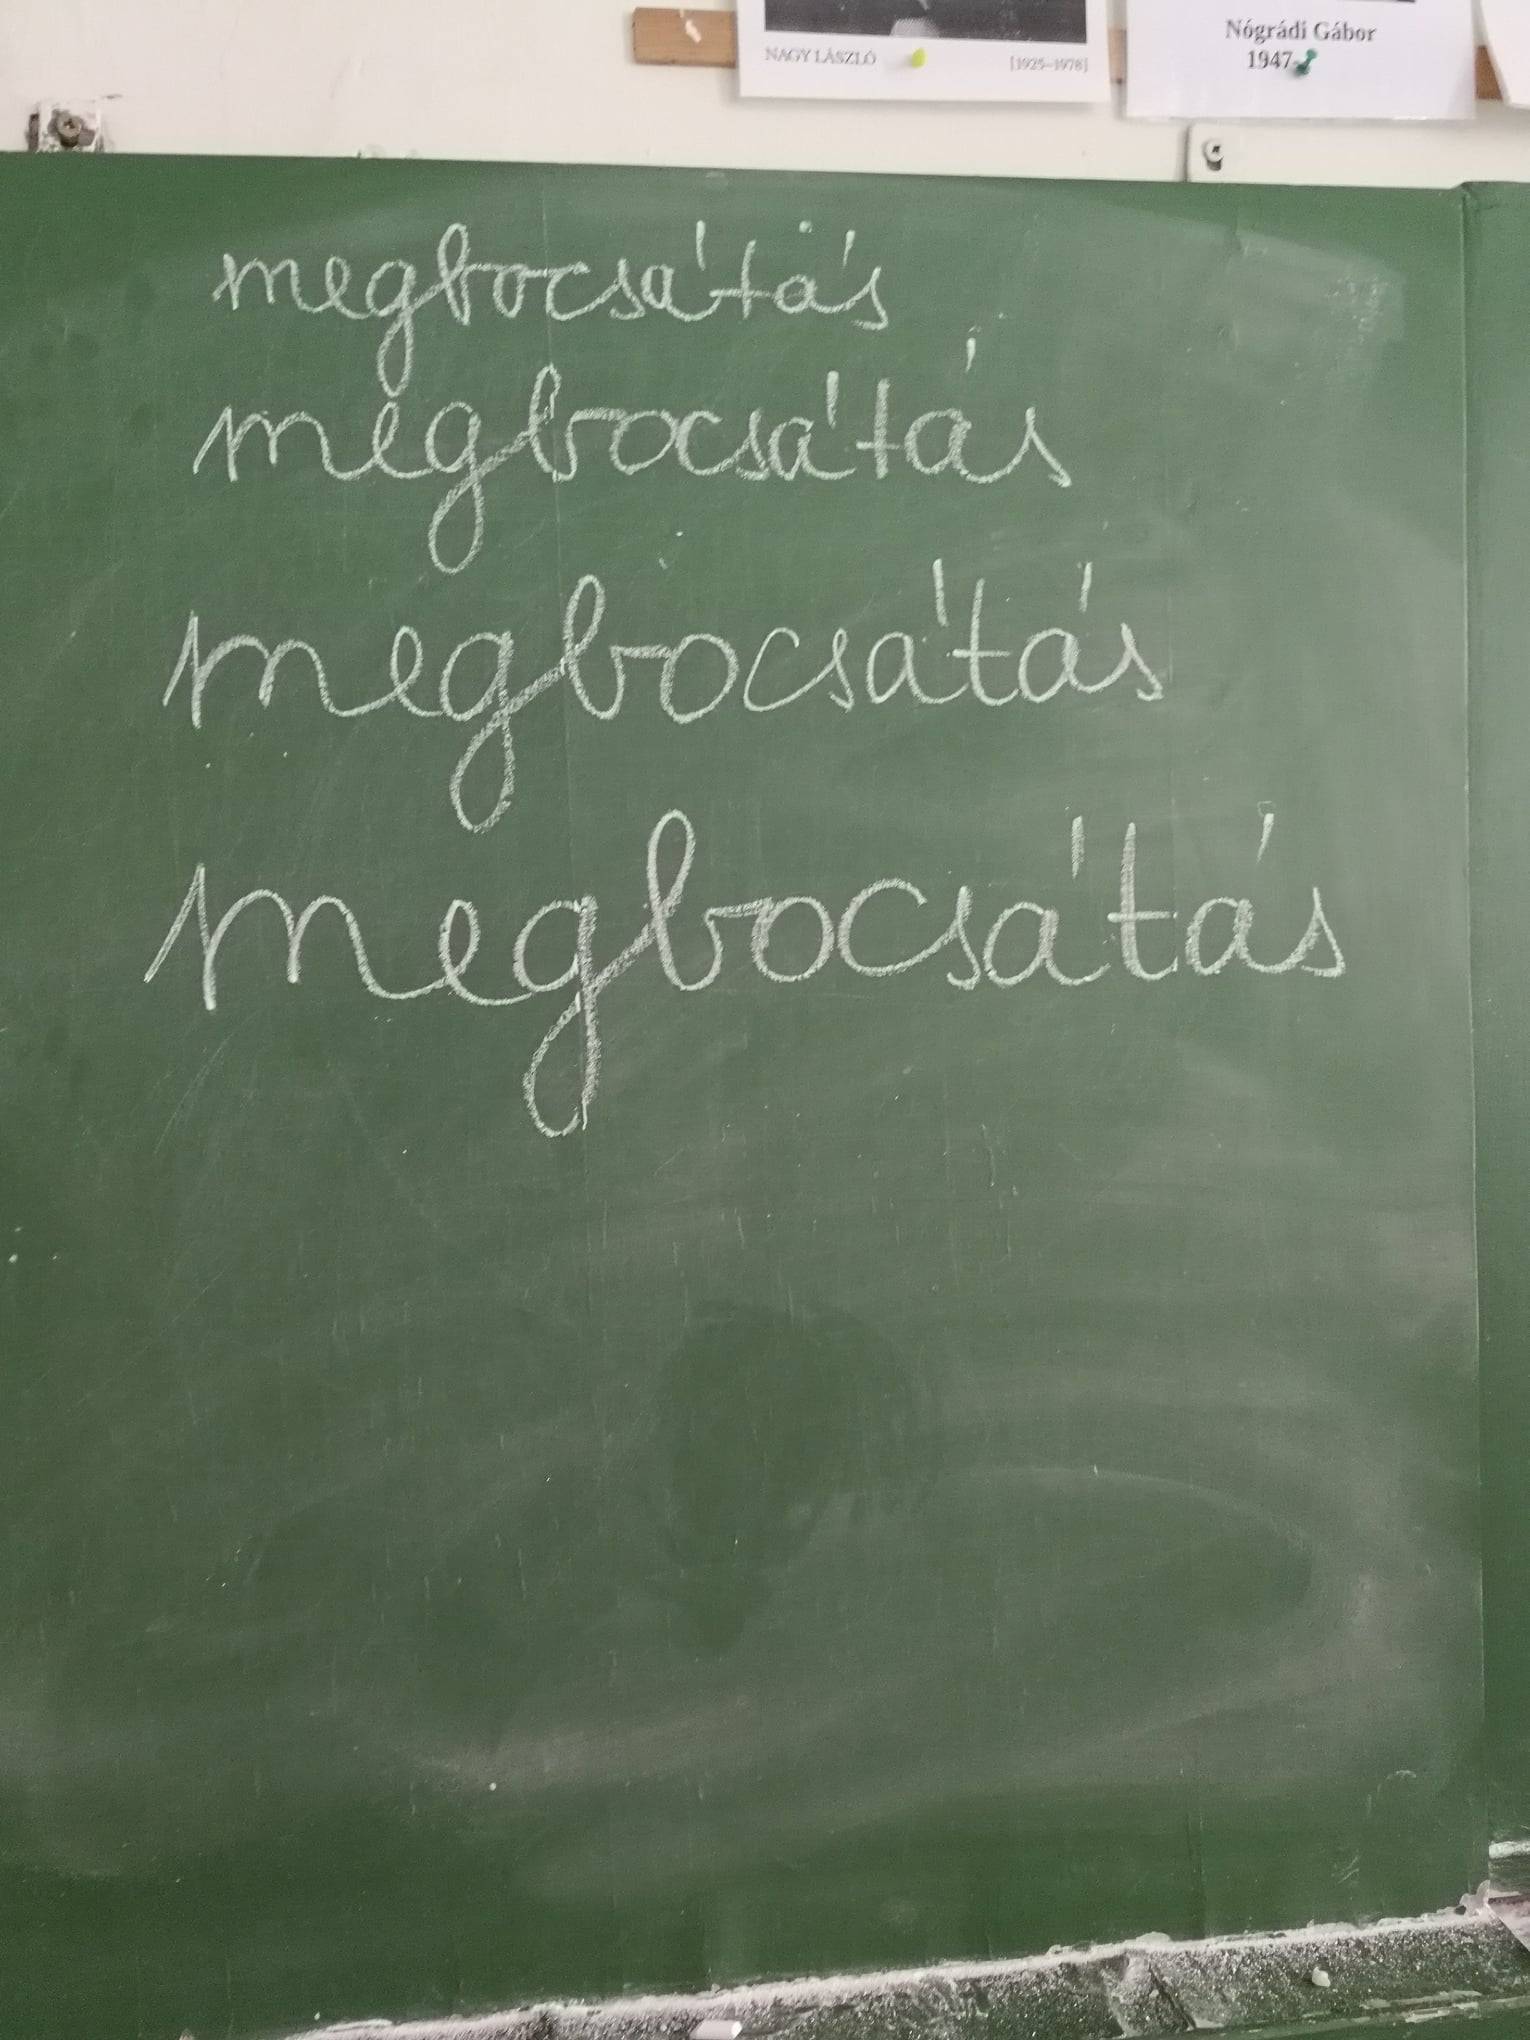 NAGY LÁSZLÓ [1925–1978]
Nógrádi Gábor
1947-
megbocsátás
megbocsátás
megbocsátás
megbocsátás